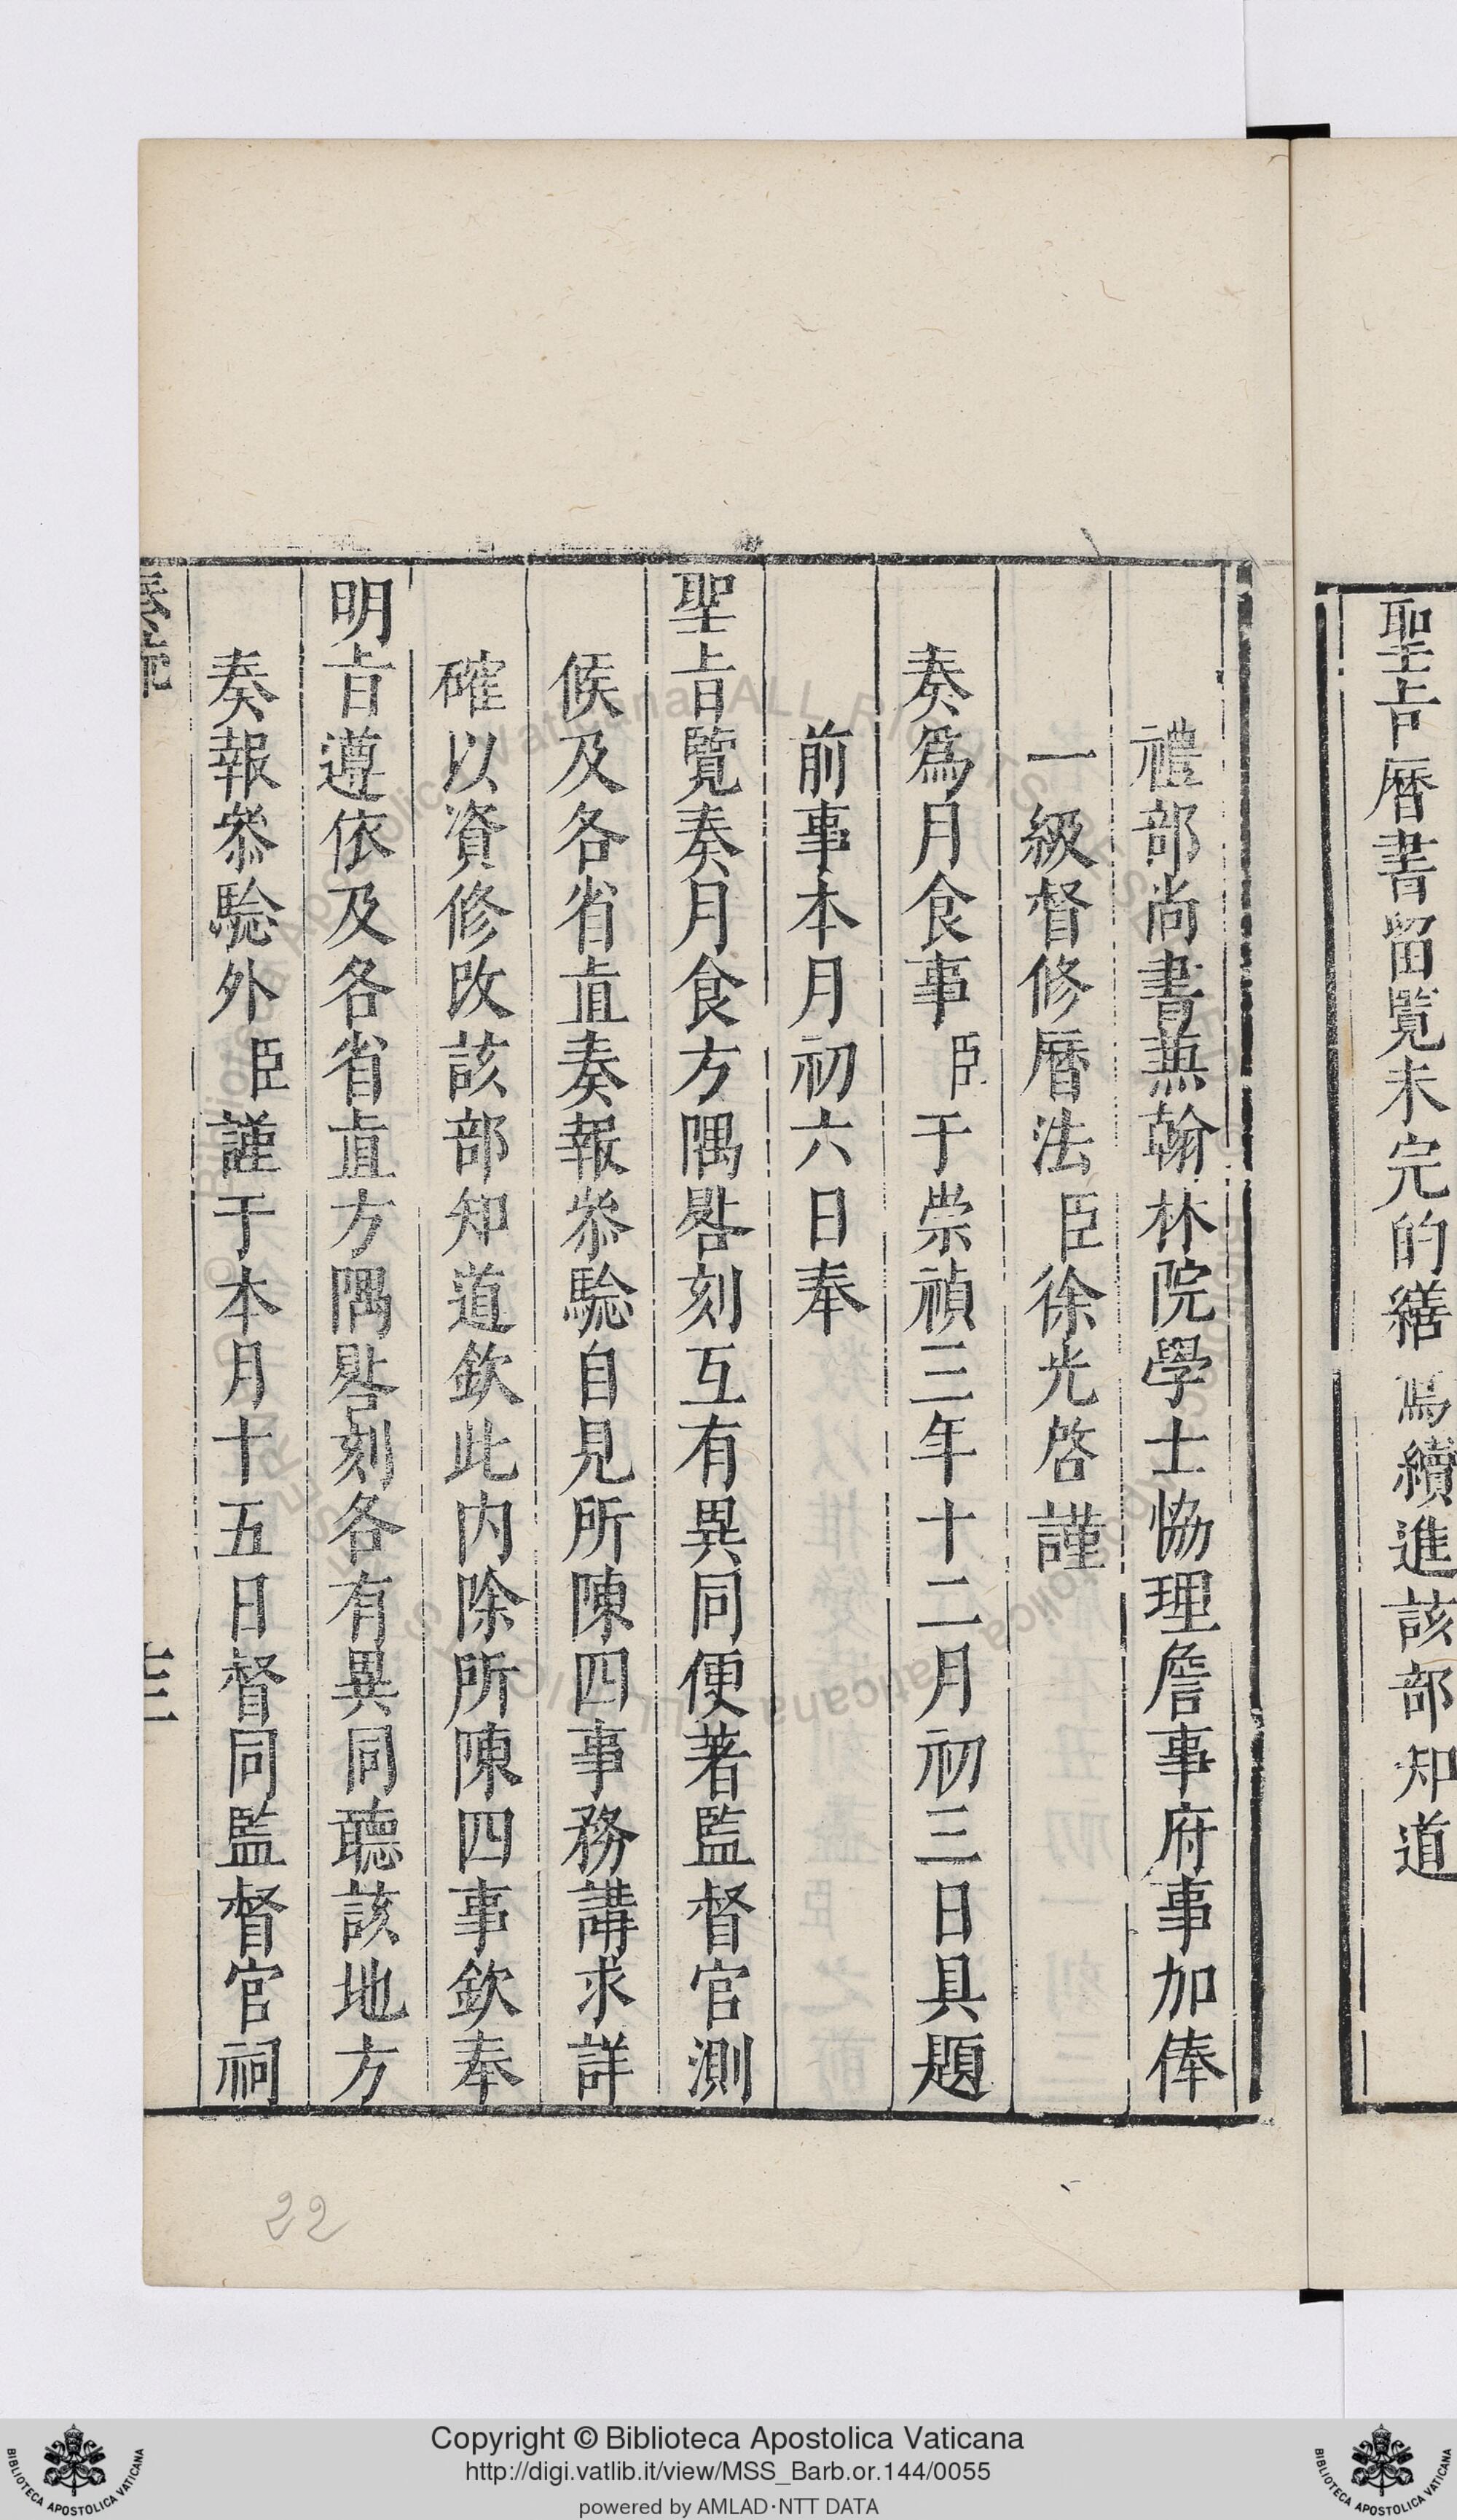 聖旨曆書留覽未完的繕寫續進該部知道
禮部尚書兼翰林院學士協理詹事府事加俸
一級督修曆法臣徐光啓謹
奏爲月食事臣于崇禎三年十二月初三日具題
前事本月初六日奉
聖旨覽奏月食方隅晷刻互有異同便著監督官測
候及各省直奏報叅驗自見所陳四事務講求詳
確以資修改該部知道欽此内除所陳四事欽奉
明旨遵依及各省直方隅晷刻各有異同聽該地方
奏報叅驗外臣謹于本月十五日督同監督官祠
奏疏
二十二
22
Copyright © Biblioteca Apostolica Vaticana
http://digi.vatlib.it/view/MSS_Barb.or.144/0055
powered by AMLAD·NTT DATA
BIBLIOTECA APOSTOLICA VATICANA
BIBLIOTECA APOSTOLICA VATICANA